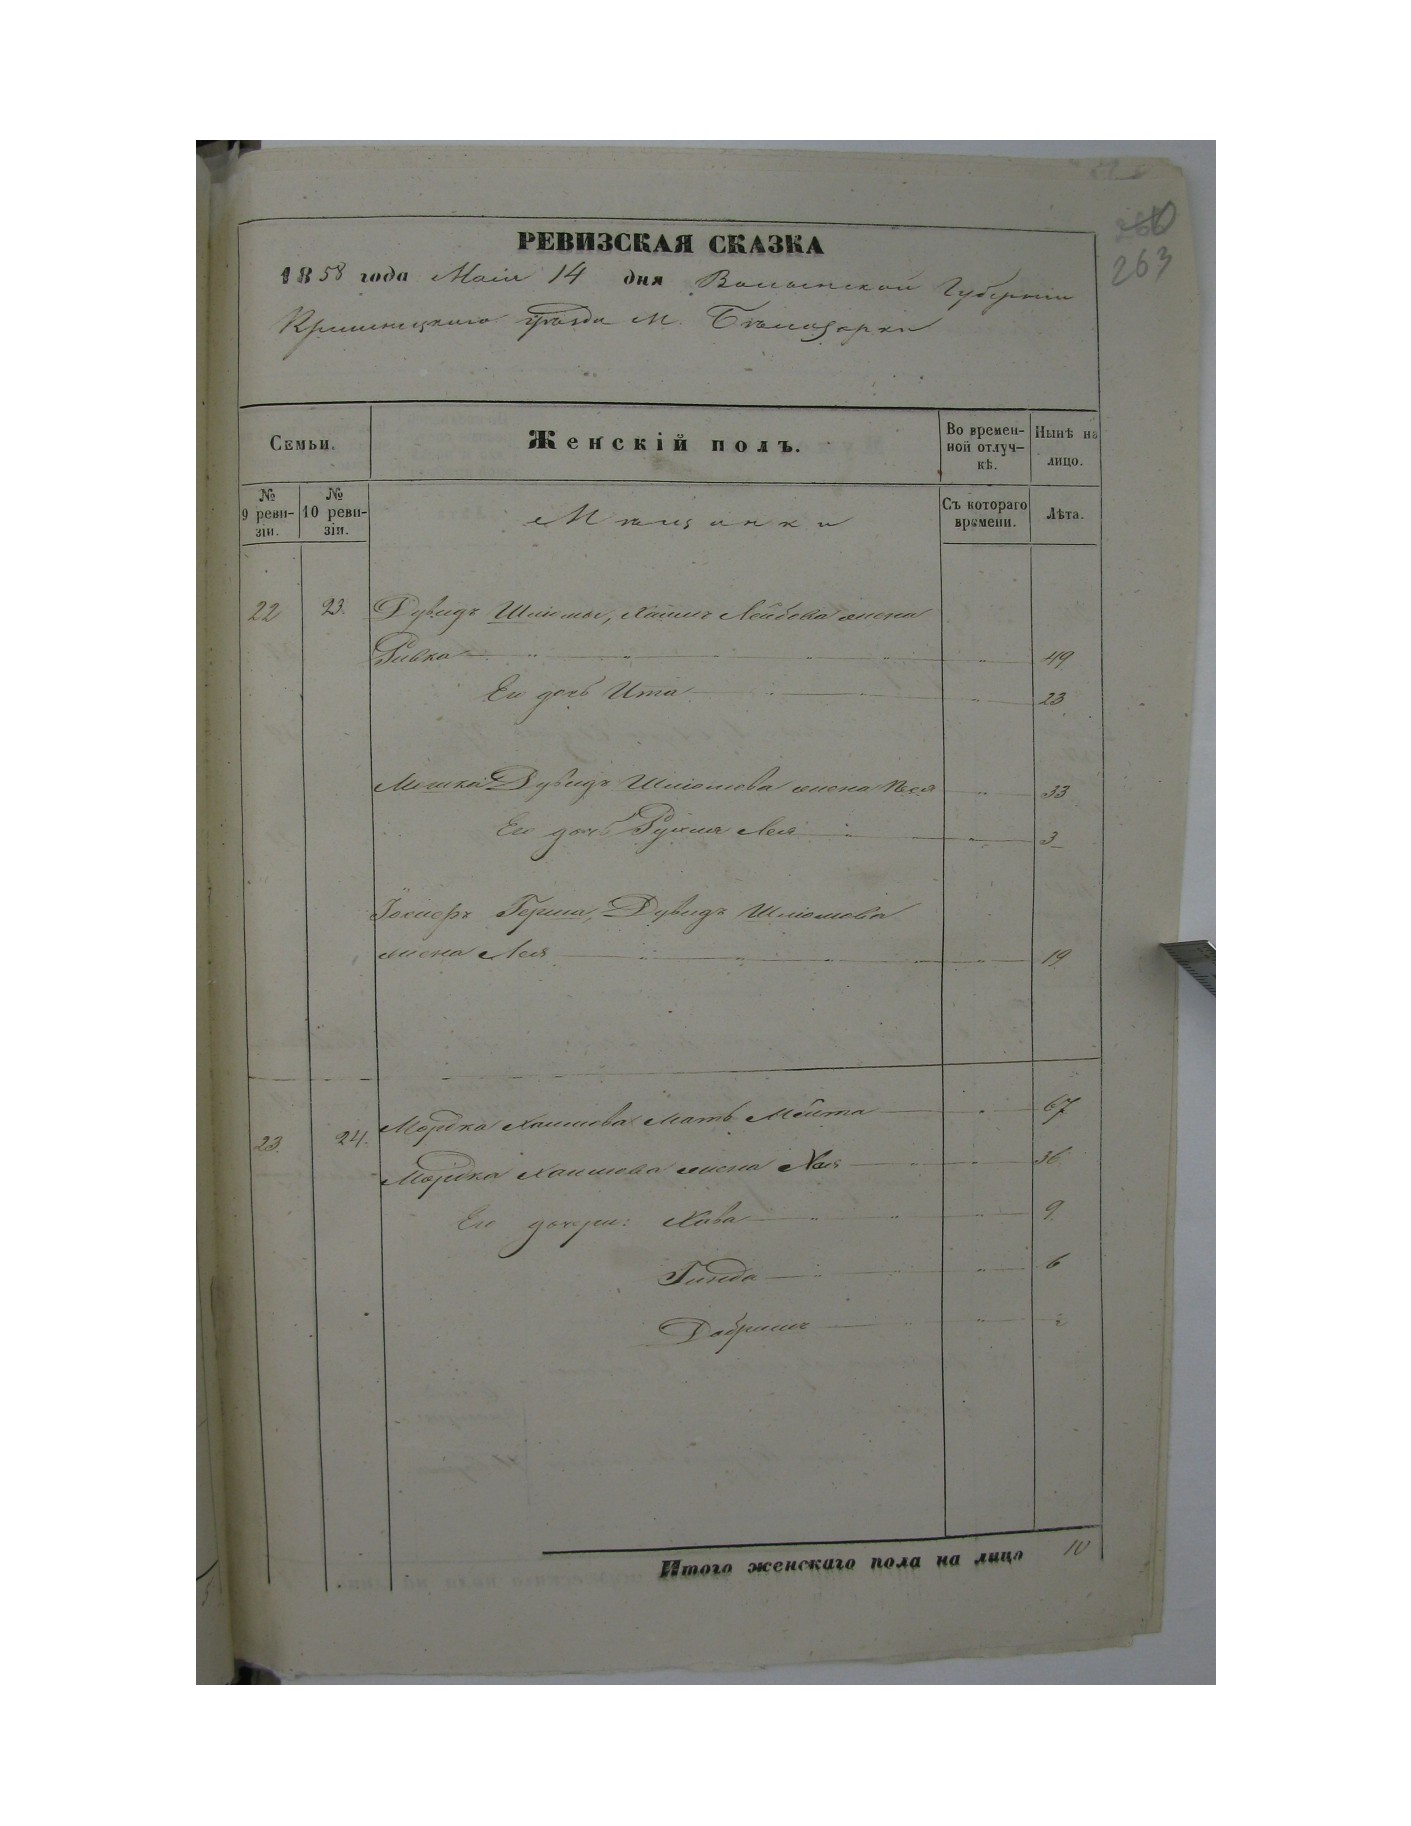 263
РЕВИЗСКАЯ СКАЗКА
1858 года Маія 14 дня Волынской Губерніи
Кременецкаго уѣзда М. Бѣлозорки
Семьи.
Женскій полъ.
Во времен-
ной отлуч-
кѣ.
Нынѣ на
лицо.
№
9 реви-
зіи.
№
10 реви-
зіи.
Мѣщанки
Съ котораго
времени.
Лѣта.
22 23. Дувидъ Шліомы, Хаимъ Лейбова жена
Ривка 49
Его дочь Ита 23
Мошка Дувидъ Шліомова жена Песя 33
Его дочь Рухля Лея 3
Іосифъ Герша, Дувидъ Шліомова
жена Лея 19
23. 24. Мордка Хаимова Мать Мейта 67
Мордка Хаимова жена 36
Его дочери: Хава 9
Гинда 6
Добришъ 2
Итого женскаго пола на лицо 10